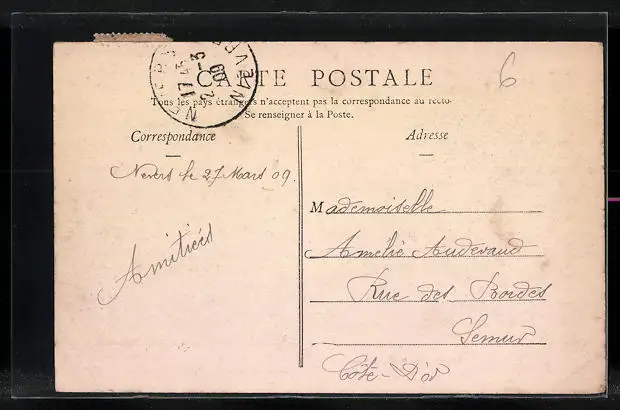 CARTE POSTALE
6
Tous les pays étrangers n'acceptent pas la correspondance au recto
Se renseigner à la Poste.
Correspondance
Adresse
Nevers le 27 Mars 09
Amitiés
Mademoiselle
Amélie Audevaud
Rue des Bordes
Semur
Côte-D'or